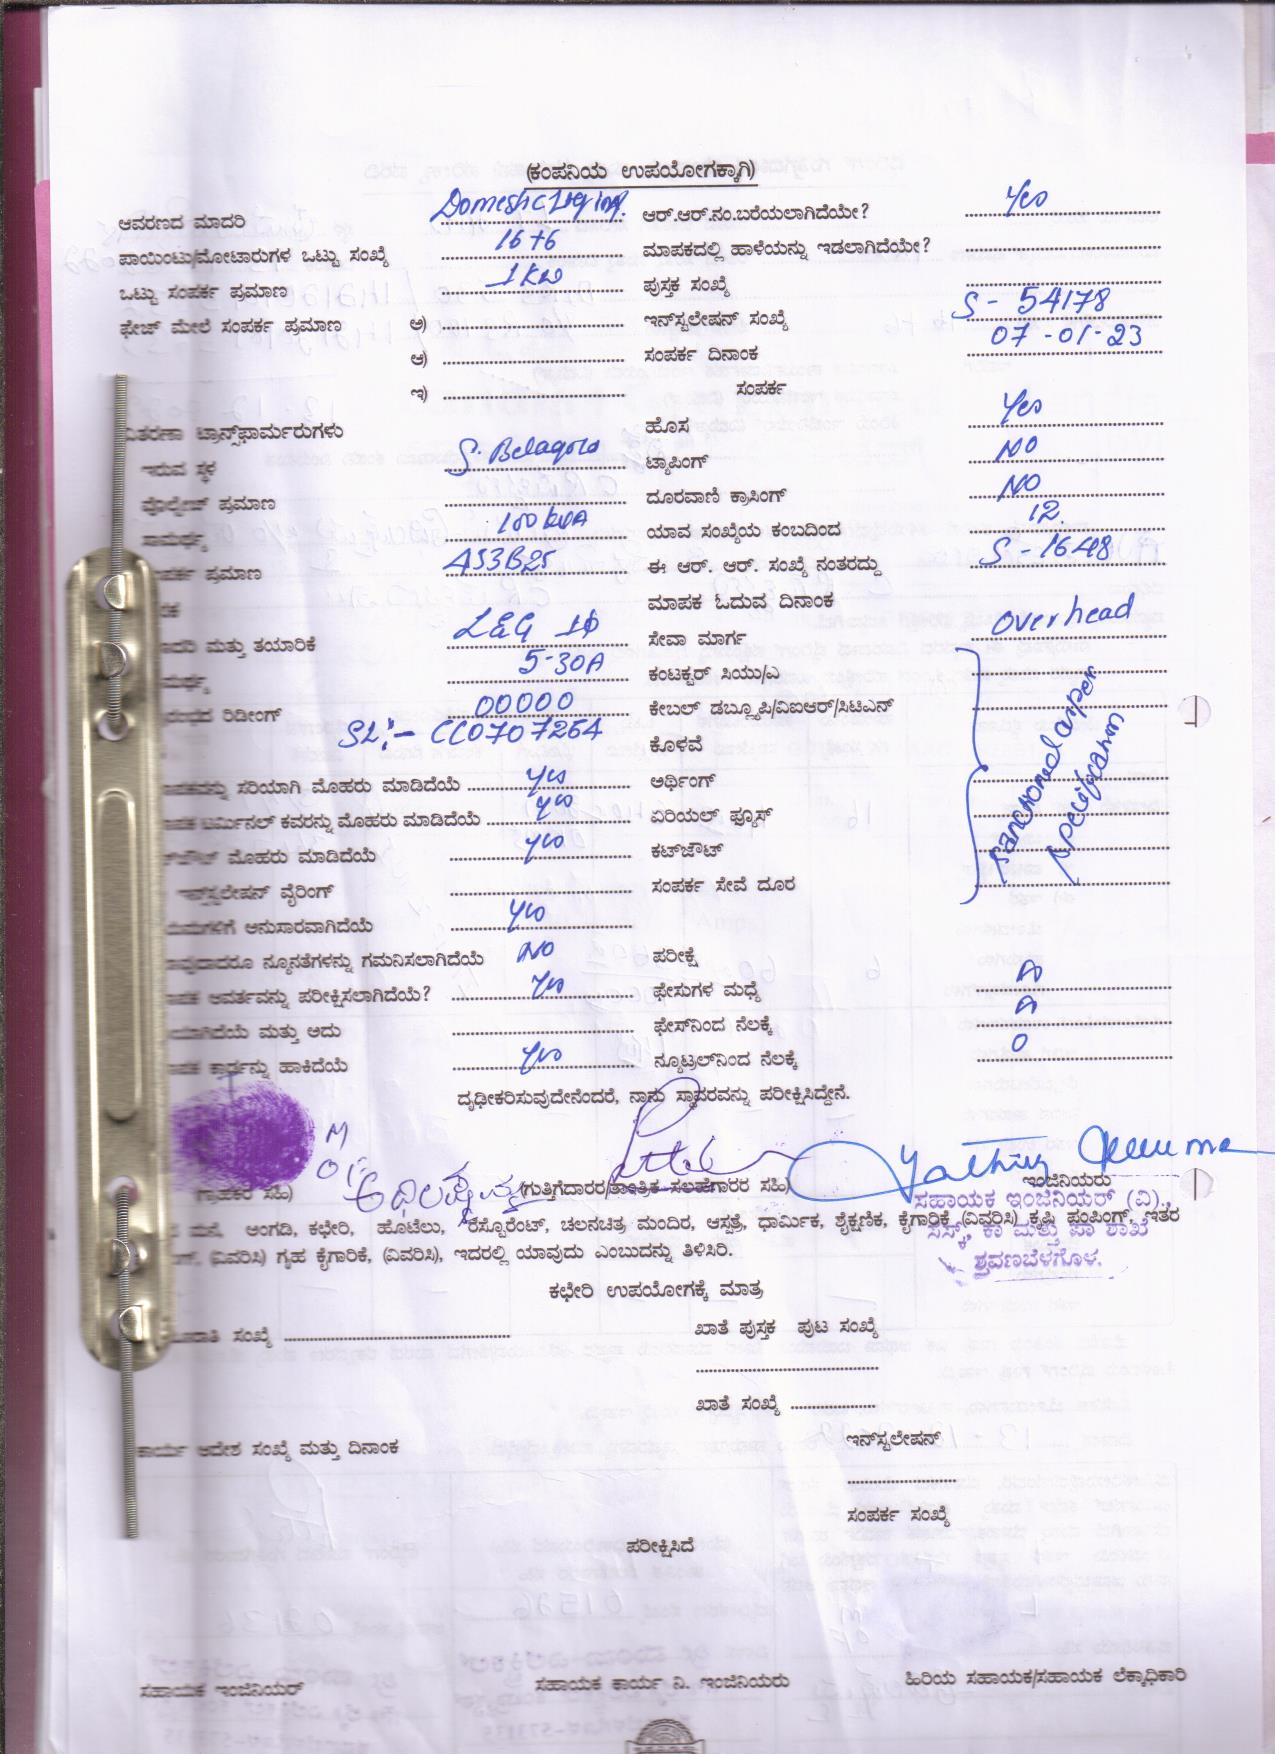 (ಕಂಪನಿಯ ಉಪಯೋಗಕ್ಕಾಗಿ)
ಆವರಣದ ಮಾದರಿ Domestic Lighting. ಆರ್.ಆರ್.ನಂ.ಬರೆಯಲಾಗಿದೆಯೇ? Yes
ಪಾಯಿಂಟು/ಮೋಟಾರುಗಳ ಒಟ್ಟು ಸಂಖ್ಯೆ 16+6 ಮಾಪಕದಲ್ಲಿ ಹಾಳೆಯನ್ನು ಇಡಲಾಗಿದೆಯೇ?
ಒಟ್ಟು ಸಂಪರ್ಕ ಪ್ರಮಾಣ 1KW ಪುಸ್ತಕ ಸಂಖ್ಯೆ
ಫೇಜ್ ಮೇಲೆ ಸಂಪರ್ಕ ಪ್ರಮಾಣ ಅ) ಇನ್‌ಸ್ಟಲೇಷನ್ ಸಂಖ್ಯೆ S - 54178
ಆ) ಸಂಪರ್ಕ ದಿನಾಂಕ 07-01-23
ಇ) ಸಂಪರ್ಕ
ವಿತರಣಾ ಟ್ರಾನ್ಸ್‌ಫಾರ್ಮರುಗಳು ಹೊಸ Yes
ಇರುವ ಸ್ಥಳ S. Belagola ಟ್ಯಾಪಿಂಗ್ NO
ವೊಲ್ಟೇಜ್ ಪ್ರಮಾಣ ದೂರವಾಣಿ ಕ್ರಾಸಿಂಗ್ NO
ಸಾಮರ್ಥ್ಯ 100 kVA ಯಾವ ಸಂಖ್ಯೆಯ ಕಂಬದಿಂದ 12
ಪ್ರಮಾಣ AS3B25 ಈ ಆರ್. ಆರ್. ಸಂಖ್ಯೆ ನಂತರದ್ದು S - 1648
ಮಾಪಕ ಓದುವ ದಿನಾಂಕ
ಮತ್ತು ತಯಾರಿಕೆ L&G 1Φ ಸೇವಾ ಮಾರ್ಗ Overhead
5-30A ಕಂಟಕ್ಟರ್ ಸಿಯು/ಎ
ರಿಡೀಂಗ್ 00000 ಕೇಬಲ್ ಡಬ್ಲ್ಯೂಪಿ/ವಿಐಆರ್/ಸಿಟಿಎನ್
SL:- CC0707264 ಕೊಳವೆ
ಸರಿಯಾಗಿ ಮೊಹರು ಮಾಡಿದೆಯೆ Yes ಅರ್ಥಿಂಗ್
ಟರ್ಮಿನಲ್ ಕವರನ್ನು ಮೊಹರು ಮಾಡಿದೆಯೆ Yes ಏರಿಯಲ್ ಫ್ಯೂಸ್
ಮೊಹರು ಮಾಡಿದೆಯೆ Yes ಕಟ್‌ಔಟ್
ಇನ್‌ಸ್ಟಲೇಷನ್ ವೈರಿಂಗ್ ಸಂಪರ್ಕ ಸೇವೆ ದೂರ
sanctioned as per
specification
ಅನುಸಾರವಾಗಿದೆಯೆ Yes
ನ್ಯೂನತೆಗಳನ್ನು ಗಮನಿಸಲಾಗಿದೆಯೆ NO ಪರೀಕ್ಷೆ
ಆವರ್ತವನ್ನು ಪರೀಕ್ಷಿಸಲಾಗಿದೆಯೆ? Yes ಫೇಸುಗಳ ಮಧ್ಯೆ
ಮತ್ತು ಅದು ಫೇಸ್‌ನಿಂದ ನೆಲಕ್ಕೆ
ಕಾರ್ಡನ್ನು ಹಾಕಿದೆಯೆ Yes ನ್ಯೂಟ್ರಲ್‌ನಿಂದ ನೆಲಕ್ಕೆ 0
ದೃಢೀಕರಿಸುವುದೇನೆಂದರೆ, ನಾನು ಸ್ಥಾವರವನ್ನು ಪರೀಕ್ಷಿಸಿದ್ದೇನೆ.
ಗ್ರಾಹಕರ ಸಹಿ) (ಗುತ್ತಿಗೆದಾರರ/ತಾಂತ್ರಿಕ ಸಲಹೆಗಾರರ ಸಹಿ) ಇಂಜಿನಿಯರು
ಸಹಾಯಕ ಇಂಜಿನಿಯರ್ (ವಿ).,
ಮನೆ, ಅಂಗಡಿ, ಕಛೇರಿ, ಹೊಟೆಲು, ರೆಸ್ಟೊರೆಂಟ್, ಚಲನಚಿತ್ರ ಮಂದಿರ, ಆಸ್ಪತ್ರೆ, ಧಾರ್ಮಿಕ, ಶೈಕ್ಷಣಿಕ, ಕೈಗಾರಿಕೆ (ವಿವರಿಸಿ) ಕೃಷಿ ಪಂಪಿಂಗ್, ಇತರ
(ವಿವರಿಸಿ) ಗೃಹ ಕೈಗಾರಿಕೆ, (ವಿವರಿಸಿ), ಇದರಲ್ಲಿ ಯಾವುದು ಎಂಬುದನ್ನು ತಿಳಿಸಿರಿ.
ಶ್ರವಣಬೆಳಗೊಳ.
ಕಛೇರಿ ಉಪಯೋಗಕ್ಕೆ ಮಾತ್ರ
ಸಂಖ್ಯೆ ಖಾತೆ ಪುಸ್ತಕ ಪುಟ ಸಂಖ್ಯೆ
ಖಾತೆ ಸಂಖ್ಯೆ
ಕಾರ್ಯ ಆದೇಶ ಸಂಖ್ಯೆ ಮತ್ತು ದಿನಾಂಕ ಇನ್‌ಸ್ಟಲೇಷನ್
ಸಂಪರ್ಕ ಸಂಖ್ಯೆ
ಪರೀಕ್ಷಿಸಿದೆ
ಸಹಾಯಕ ಇಂಜಿನಿಯರ್ ಸಹಾಯಕ ಕಾರ್ಯ ನಿ. ಇಂಜಿನಿಯರು ಹಿರಿಯ ಸಹಾಯಕ/ಸಹಾಯಕ ಲೆಕ್ಕಾಧಿಕಾರಿ